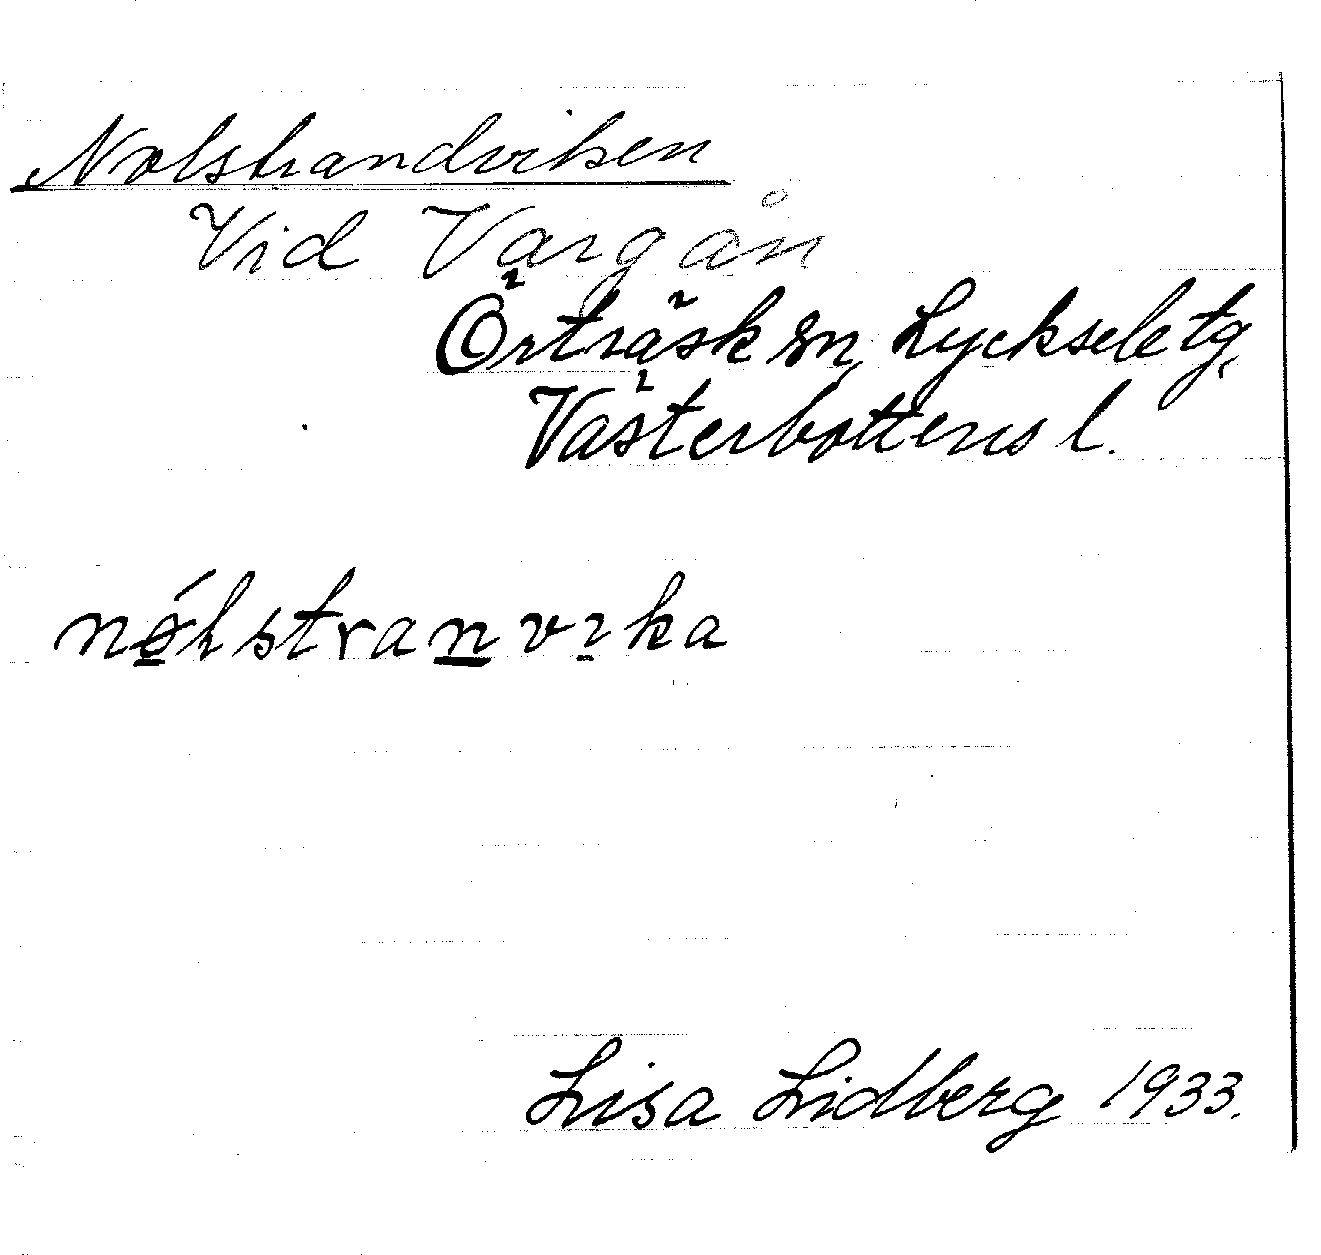 Nolstrandviken
Vid Vargån
Örträsk sn, Lycksele tg,
Västerbottens l.
nó̱lstran̲vı̱ka
Lisa Lidberg 1933.